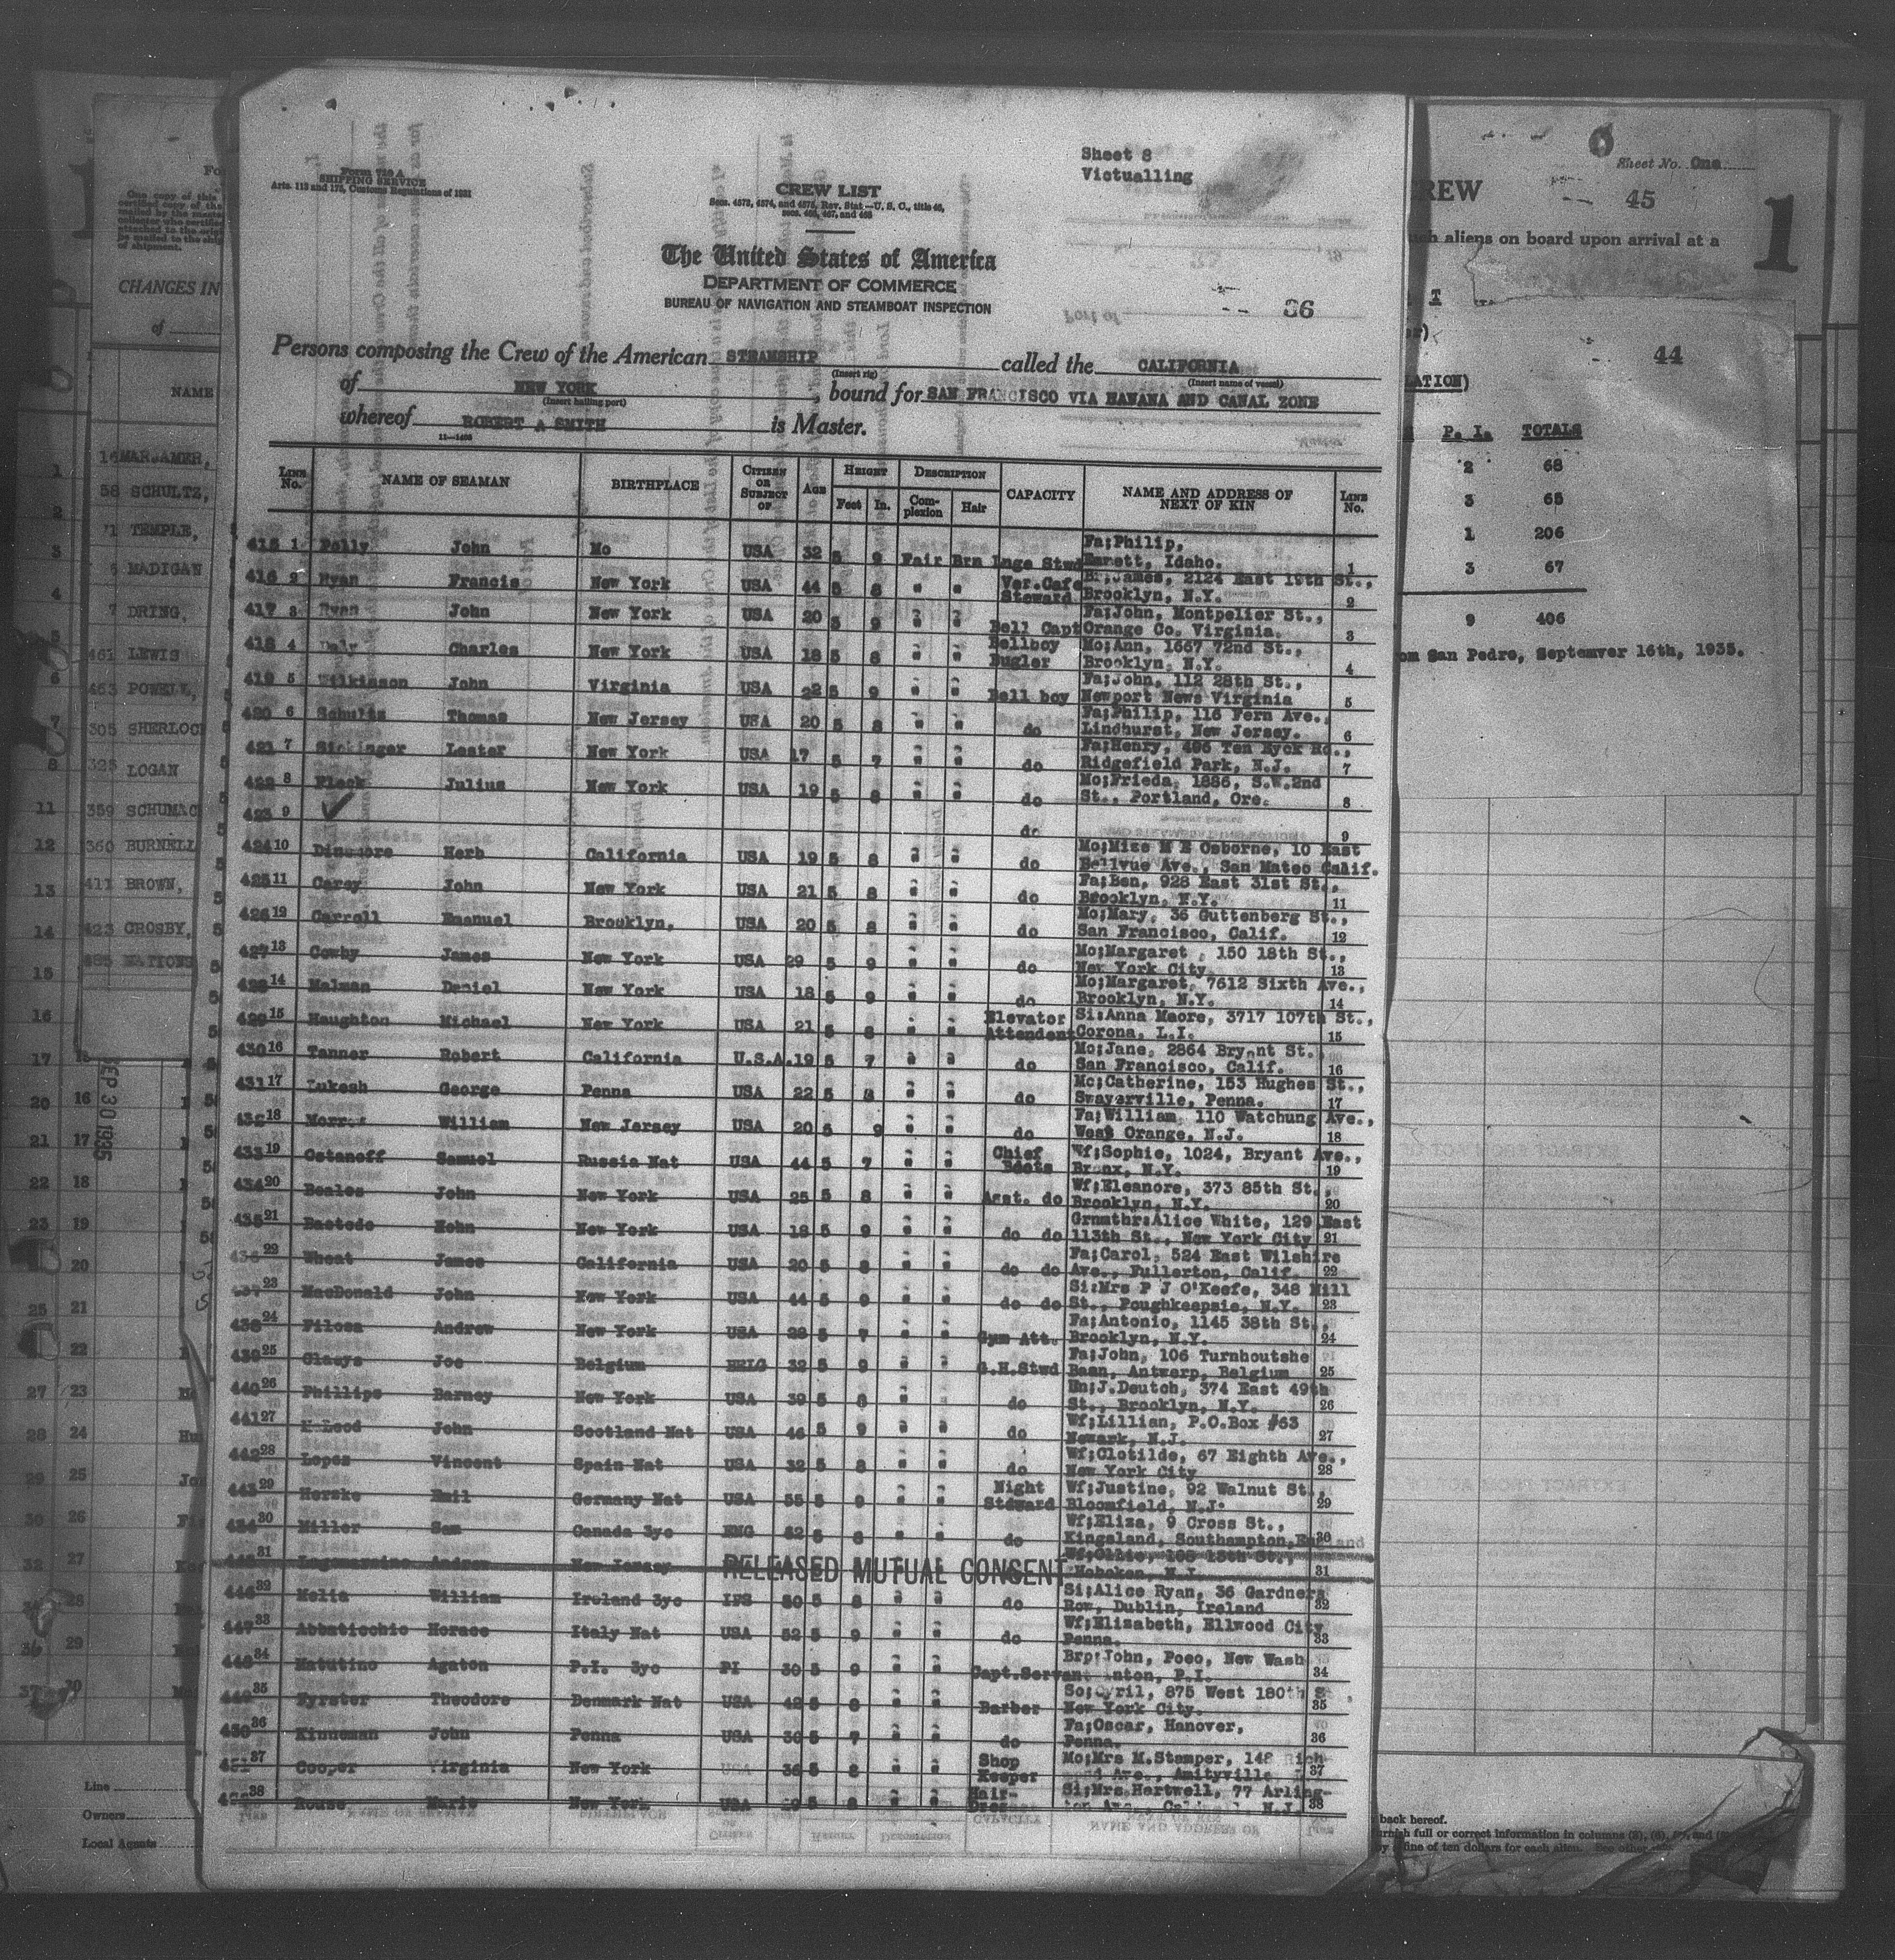 Sheet 8
Victualling
Form 710 A
SHIPPING SERVICE
Arts. 113 and 175, Customs Regulations of 1931
CREW LIST
Secs. 4573, 4574, and 4575, Rev. Stat.—U. S. C., title 46,
secs. 465, 467, and 468
The United States of America
DEPARTMENT OF COMMERCE
BUREAU OF NAVIGATION AND STEAMBOAT INSPECTION
-- 86
Persons composing the Crew of the American STEAMSHIP called the CALIFORNIA
(Insert rig) (Insert name of vessel)
of NEW YORK, bound for SAN FRANCISCO VIA HAVANA AND CANAL ZONE
(Insert hailing port)
whereof ROBERT A SMITH is Master.
LINE No. NAME OF SEAMAN BIRTHPLACE CITIZEN OR SUBJECT OF AGE HEIGHT Feet In. DESCRIPTION Complexion Hair CAPACITY NAME AND ADDRESS OF NEXT OF KIN LINE No.
415 1 Polly John Mo USA 32 5 9 Fair Brn Lnge Stwd Fa;Philip, Emmett, Idaho. 1
416 2 Ryan Francis New York USA 44 5 8 " " Ver.Cafe Steward Br;James, 2124 East 19th St., Brooklyn, N.Y. 2
417 3 Ryan John New York USA 20 5 9 " " Bell Capt Fa;John, Montpelier St., Orange Co. Virginia. 3
418 4 Daly Charles New York USA 18 5 8 " " Bellboy Bugler Mo;Ann, 1667 72nd St., Brooklyn, N.Y. 4
419 5 Wilkinson John Virginia USA 22 5 9 " " Bell boy Fa;John, 112 28th St., Newport News Virginia 5
420 6 Schultz Thomas New Jersey USA 20 5 8 " " do Fa;Philip, 115 Fern Ave., Lindhurst, New Jersey. 6
421 7 Sickinger Lester New York USA 17 5 7 " " do Fa;Henry, 495 Ten Eyck Rd., Ridgefield Park, N.J. 7
422 8 Fleck Julius New York USA 19 5 8 " " do Mo;Frieda, 1886, S.W.2nd St., Portland, Ore. 8
423 9 do 9
424 10 Dinsmore Herb California USA 19 5 8 " " do Mo;Miss M E Osborne, 10 East Bellvue Ave., San Mateo Calif. 10
425 11 Carey John New York USA 21 5 8 " " do Fa;Ben, 928 East 31st St., Brooklyn, N.Y. 11
426 12 Carroll Emanuel Brooklyn, USA 20 5 8 " " do Mo;Mary, 36 Guttenberg St., San Francisco, Calif. 12
427 13 Cowby James New York USA 29 5 9 " " do Mo;Margaret, 150 18th St., New York City 13
428 14 Malman Daniel New York USA 18 5 9 " " do Mo;Margaret, 7612 Sixth Ave., Brooklyn, N.Y. 14
429 15 Haughton Michael New York USA 21 5 8 " " Elevator Attendent Si:Anna Maore, 3717 107th St., Corona, L.I. 15
430 16 Tanner Robert California U.S.A. 19 5 7 " " do Mo;Jane, 2864 Bryant St. San Francisco, Calif. 16
431 17 Lukesh George Penna USA 22 5 8 " " do Mo;Catherine, 153 Hughes St., Swayerville, Penna. 17
432 18 William New Jersey USA 20 5 9 " " do Fa;William, 110 Watchung Ave., West Orange, N.J. 18
433 19 Ostanoff Samuel Russia Nat USA 44 5 7 " " Chief Boots Wf;Sophie, 1024, Bryant Ave., Bronx, N.Y. 19
434 20 Beales John New York USA 25 5 8 " " Asst. do Wf;Eleanore, 373 85th St., Brooklyn, N.Y. 20
435 21 Bastedo John New York USA 18 5 9 " " do do Grnmthr:Alice White, 129 East 113th St., New York City 21
436 22 Wheat James California USA 20 5 8 " " do do Fa;Carol, 524 East Wilshire Ave., Fullerton, Calif. 22
437 23 MacDonald John New York USA 44 5 9 " " do do Si:Mrs P J O'Keefe, 348 Mill St., Poughkeepsie, N.Y. 23
438 24 Filosa Andrew New York USA 28 5 7 " " Gym Att. Fa;Antonio, 1145 38th St., Brooklyn, N.Y. 24
439 25 Claeys Joe Belgium BELG 32 5 9 " " G.H.Stwd Fa;John, 106 Turnhoutshe Baan, Antwerp, Belgium 25
440 26 Phillips Barney New York USA 39 5 8 " " do Un;J.Deutch, 374 East 49th St., Brooklyn, N.Y. 26
441 27 McLeod John Scotland Nat USA 46 5 9 " " do Wf;Lillian, P.O.Box #63 Newark, N.J. 27
442 28 Lopez Vincent Spain Nat USA 32 5 8 " " do Wf;Clotilde, 67 Eighth Ave., New York City 28
443 29 Herzke Emil Germany Nat USA 55 5 9 " " Night Steward Wf;Justine, 92 Walnut St., Bloomfield, N.J. 29
30 Miller Sam Canada 3yc ENG 5 8 " " do Wf;Eliza, 9 Cross St., Kingsland, Southampton,England 30
31 Lagomarsino Andrew New Jersey RELEASED MUTUAL CONSENT Hoboken, N.J. 31
446 32 Melia William Ireland 3yc IFS 50 5 8 " " do Si;Alice Ryan, 36 Gardners Row, Dublin, Ireland 32
447 33 Abbaticchio Horace Italy Nat USA 52 5 9 " " do Wf;Elizabeth, Ellwood City Penna. 33
448 34 Matutino Agaton P.I. 3yc PI 30 5 9 " " Capt.Servant Brp;John, Poeo, New Wash nton, P.I. 34
449 35 Fyrster Theodore Denmark Nat USA 42 5 8 " " Barber So;Cyril, 875 West 180th S , New York City. 35
450 36 Kinneman John Penna USA 30 5 7 " " do Fa;Oscar, Hanover, Penna. 36
451 37 Cooper Virginia New York USA 36 5 8 " " Shop Keeper Mo;Mrs M.Stamper, 148 Rich- Ave., Amityville 37
38 Rouse Marie New York USA 5 8 " " Hair- Si;Mrs Hartwell, 77 Arling- ton Ave., N.J. 38
Sheet No. One
CREW
-- 45
1
ch aliens on board upon arrival at a
-- 44
P. I. TOTALS
2 68
3 65
1 206
3 67
9 406
om San Pedro, Septemver 16th, 1935.
CHANGES IN
of
NAME
16 MARJAMER,
58 SCHULTZ,
71 TEMPLE,
MADIGAN
7 DRING,
461 LEWIS
463 POWELL,
305 SHERLOC
325 LOGAN
359 SCHUMAC
360 BURNELL
411 BROWN,
423 CROSBY,
NATIONS
SEP 30 1935
Line
Owners
Local Agents
back hereof.
furnish full or correct information in columns (5), (6), (7), and (8)
fine of ten dollars for each alien. See other